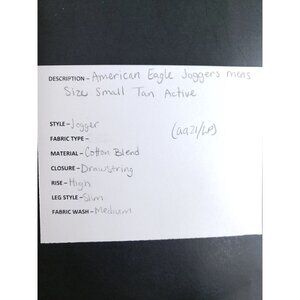 DESCRIPTION - American Eagle Joggers mens
Size Small Tan Active
STYLE - Jogger
FABRIC TYPE -
MATERIAL - Cotton Blend
CLOSURE - Drawstring
RISE - High
LEG STYLE - Slim
FABRIC WASH - Medium